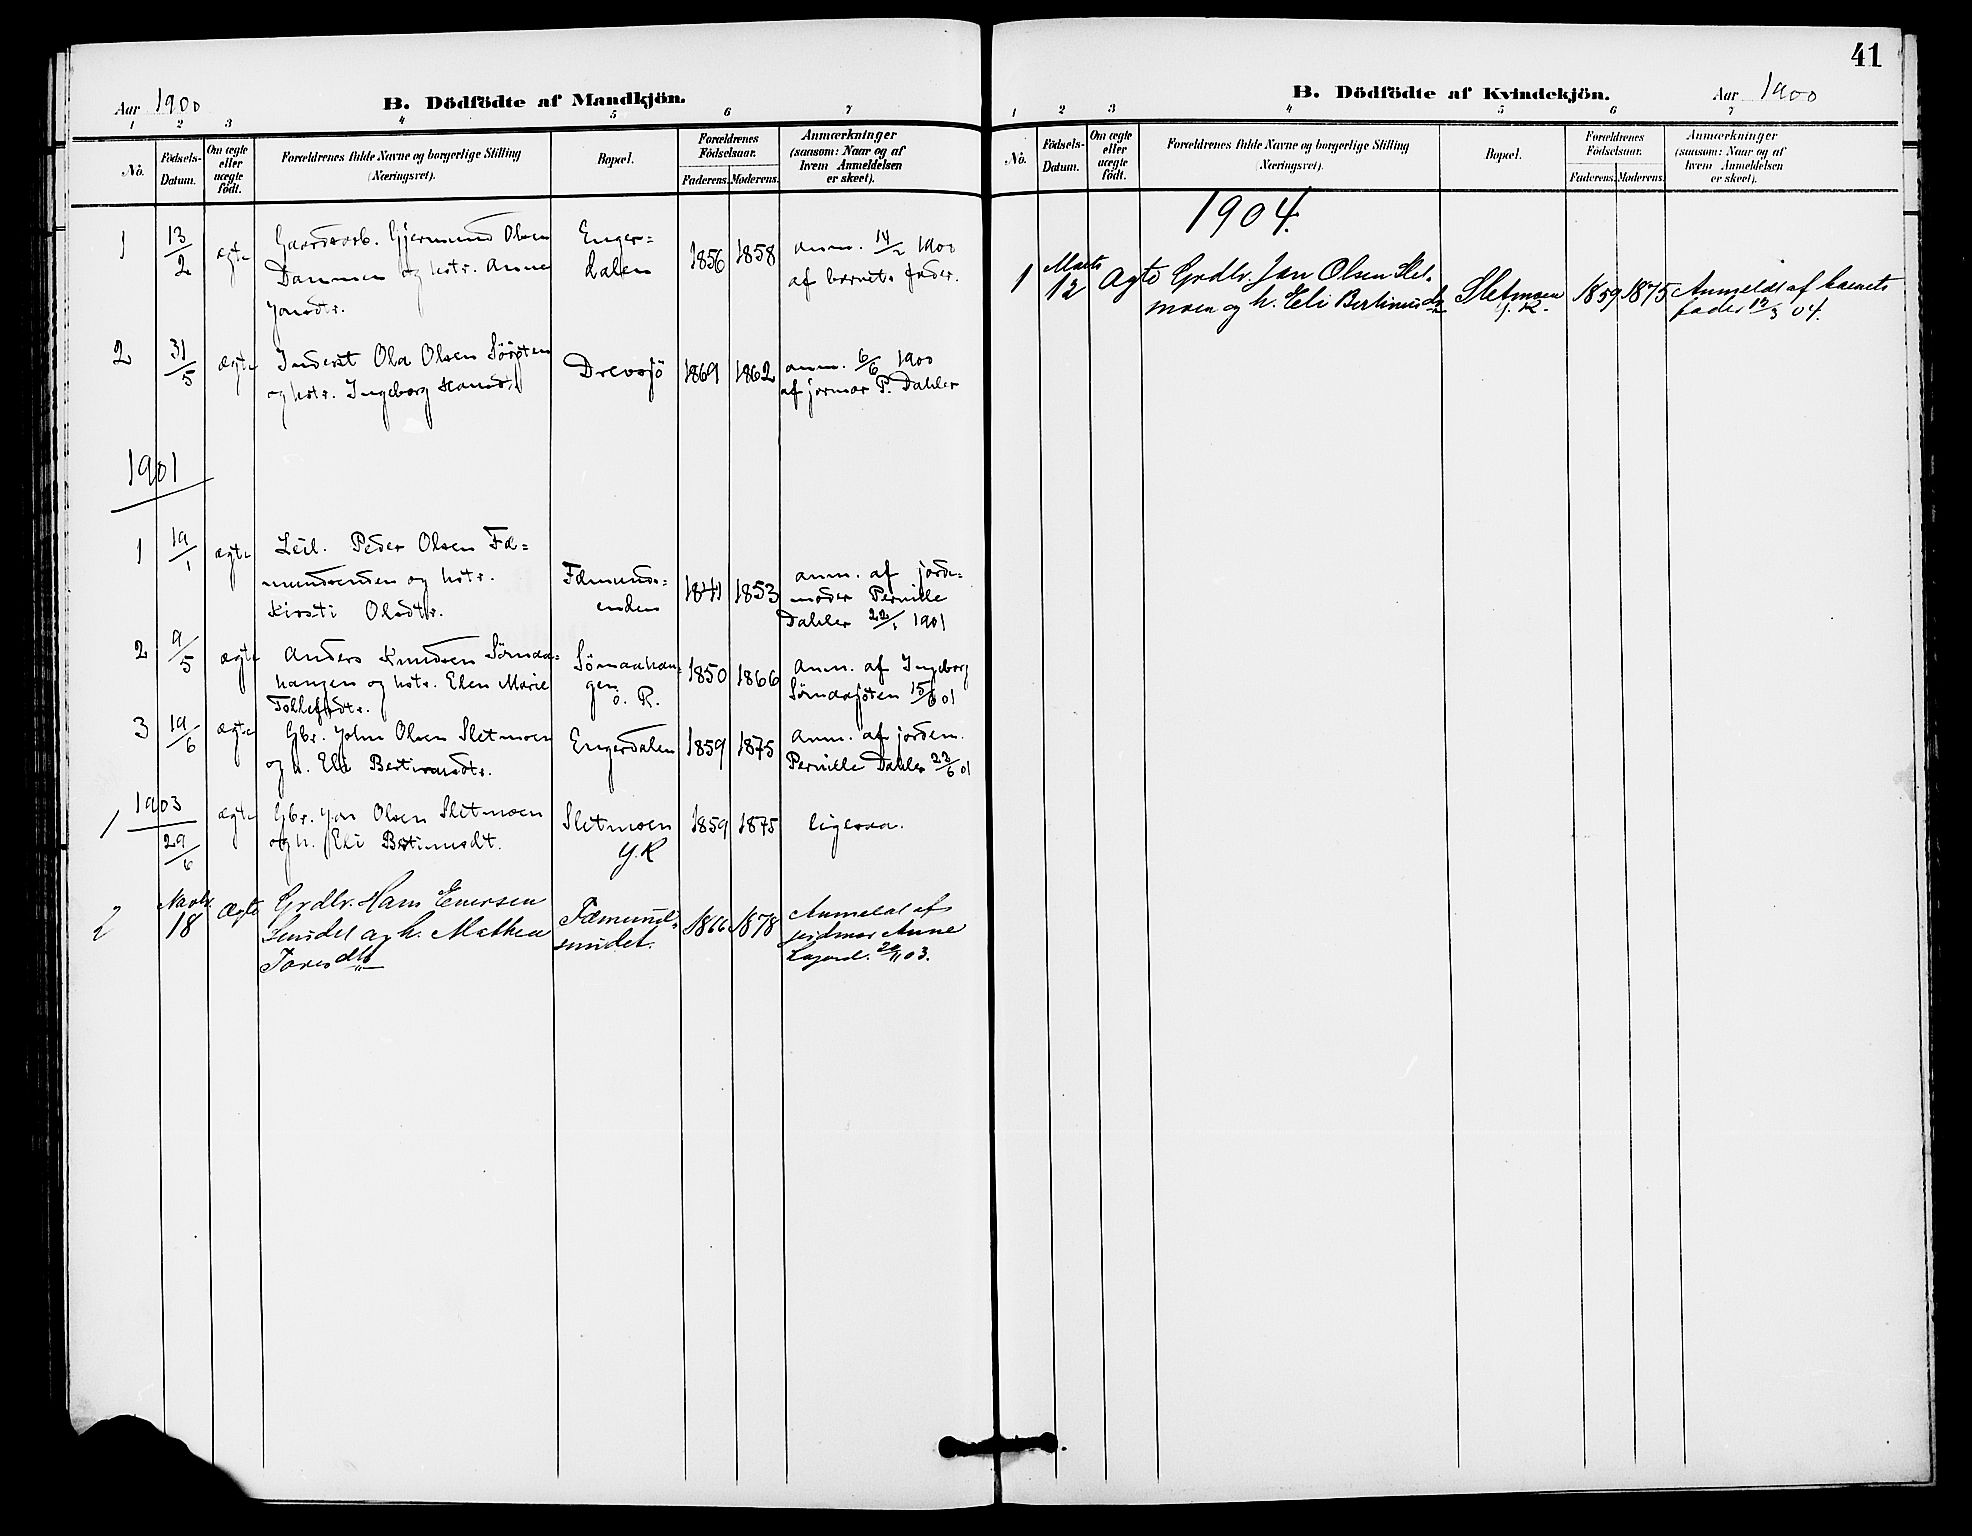 Aar 1900
B. Dödfödte af Mandkjön.
1 2 3 4 5 6 7
No. Födsels-Datum. Om ægte eller uægte födt. Forældrenes fulde Navne og borgerlige Stilling (Næringsvei). Bopæl. Forældrenes Födselsaar. Faderens. Moderens. Anmærkninger (saasom: Naar og af hvem Anmeldelsen er skeet).
1 13/2 ægte Gaardarb. Gjermund Olsen Enger= 1856 1858 anm. 14/2 1900
og hstr. Anne dalen af barnets fader.
Jonsdtr.
2 31/5 ægte Inderst Ola Olsen Drevsjö 1869 1862 anm. 6/6 1900
og hstr. Ingeborg Hansdt. af jormor P. Dahler
1901
1 19/1 ægte Leil. Peder Olsen Fæ=
mundsenden og hstr. Fæmunds= 1841 1853 anm. af jorde=
Kirsti Olsdtr. enden moder Pernille
Dahler 22/1 1901
2 9/5 ægte Anders Knudsen Sömaa= Sömaahan= 1850 1866 anm. af Ingeborg
hangen og hstr. Elen Marie gen 15/6 01
Tollefsdtr. ö. R.
3 19/6 ægte Gbr. John Olsen Sletmoen Engerdalen 1859 1875 anm. af jordem.
og h. Eli Bertinusdtr. Pernille Dahler 22/6 01
1903
1 29/6 ægte Gbr. Jon Olsen Sletmoen Sletmoen 1859 1875 ligesaa.
og h. Eli Bertinusdt. y. R
2 Novbr. 18 Ægte Grdbr. Hans Enersen Fæmund- 1866 1878 Anmeldt af
Sundet og h. Mathea sundet. jordmor Anne
Toresdtr 03.
41
B. Dödfödte af Kvindekjön.
Aar 1900
1 2 3 4 5 6 7
No. Födsels-Datum. Om ægte eller uægte födt. Forældrenes fulde Navne og borgerlige Stilling (Næringsvei). Bopæl. Forældrenes Födselsaar. Faderens. Moderens. Anmærkninger (saasom: Naar og af hvem Anmeldelsen er skeet).
1904.
1 Marts 12 Ægte Grdbr. Jon Olsen Slet- Sletmoen 1859 1875 Anmeldt af barnets
moen og h. Eli Bertinusdtr y. R. fader 12/3 04.